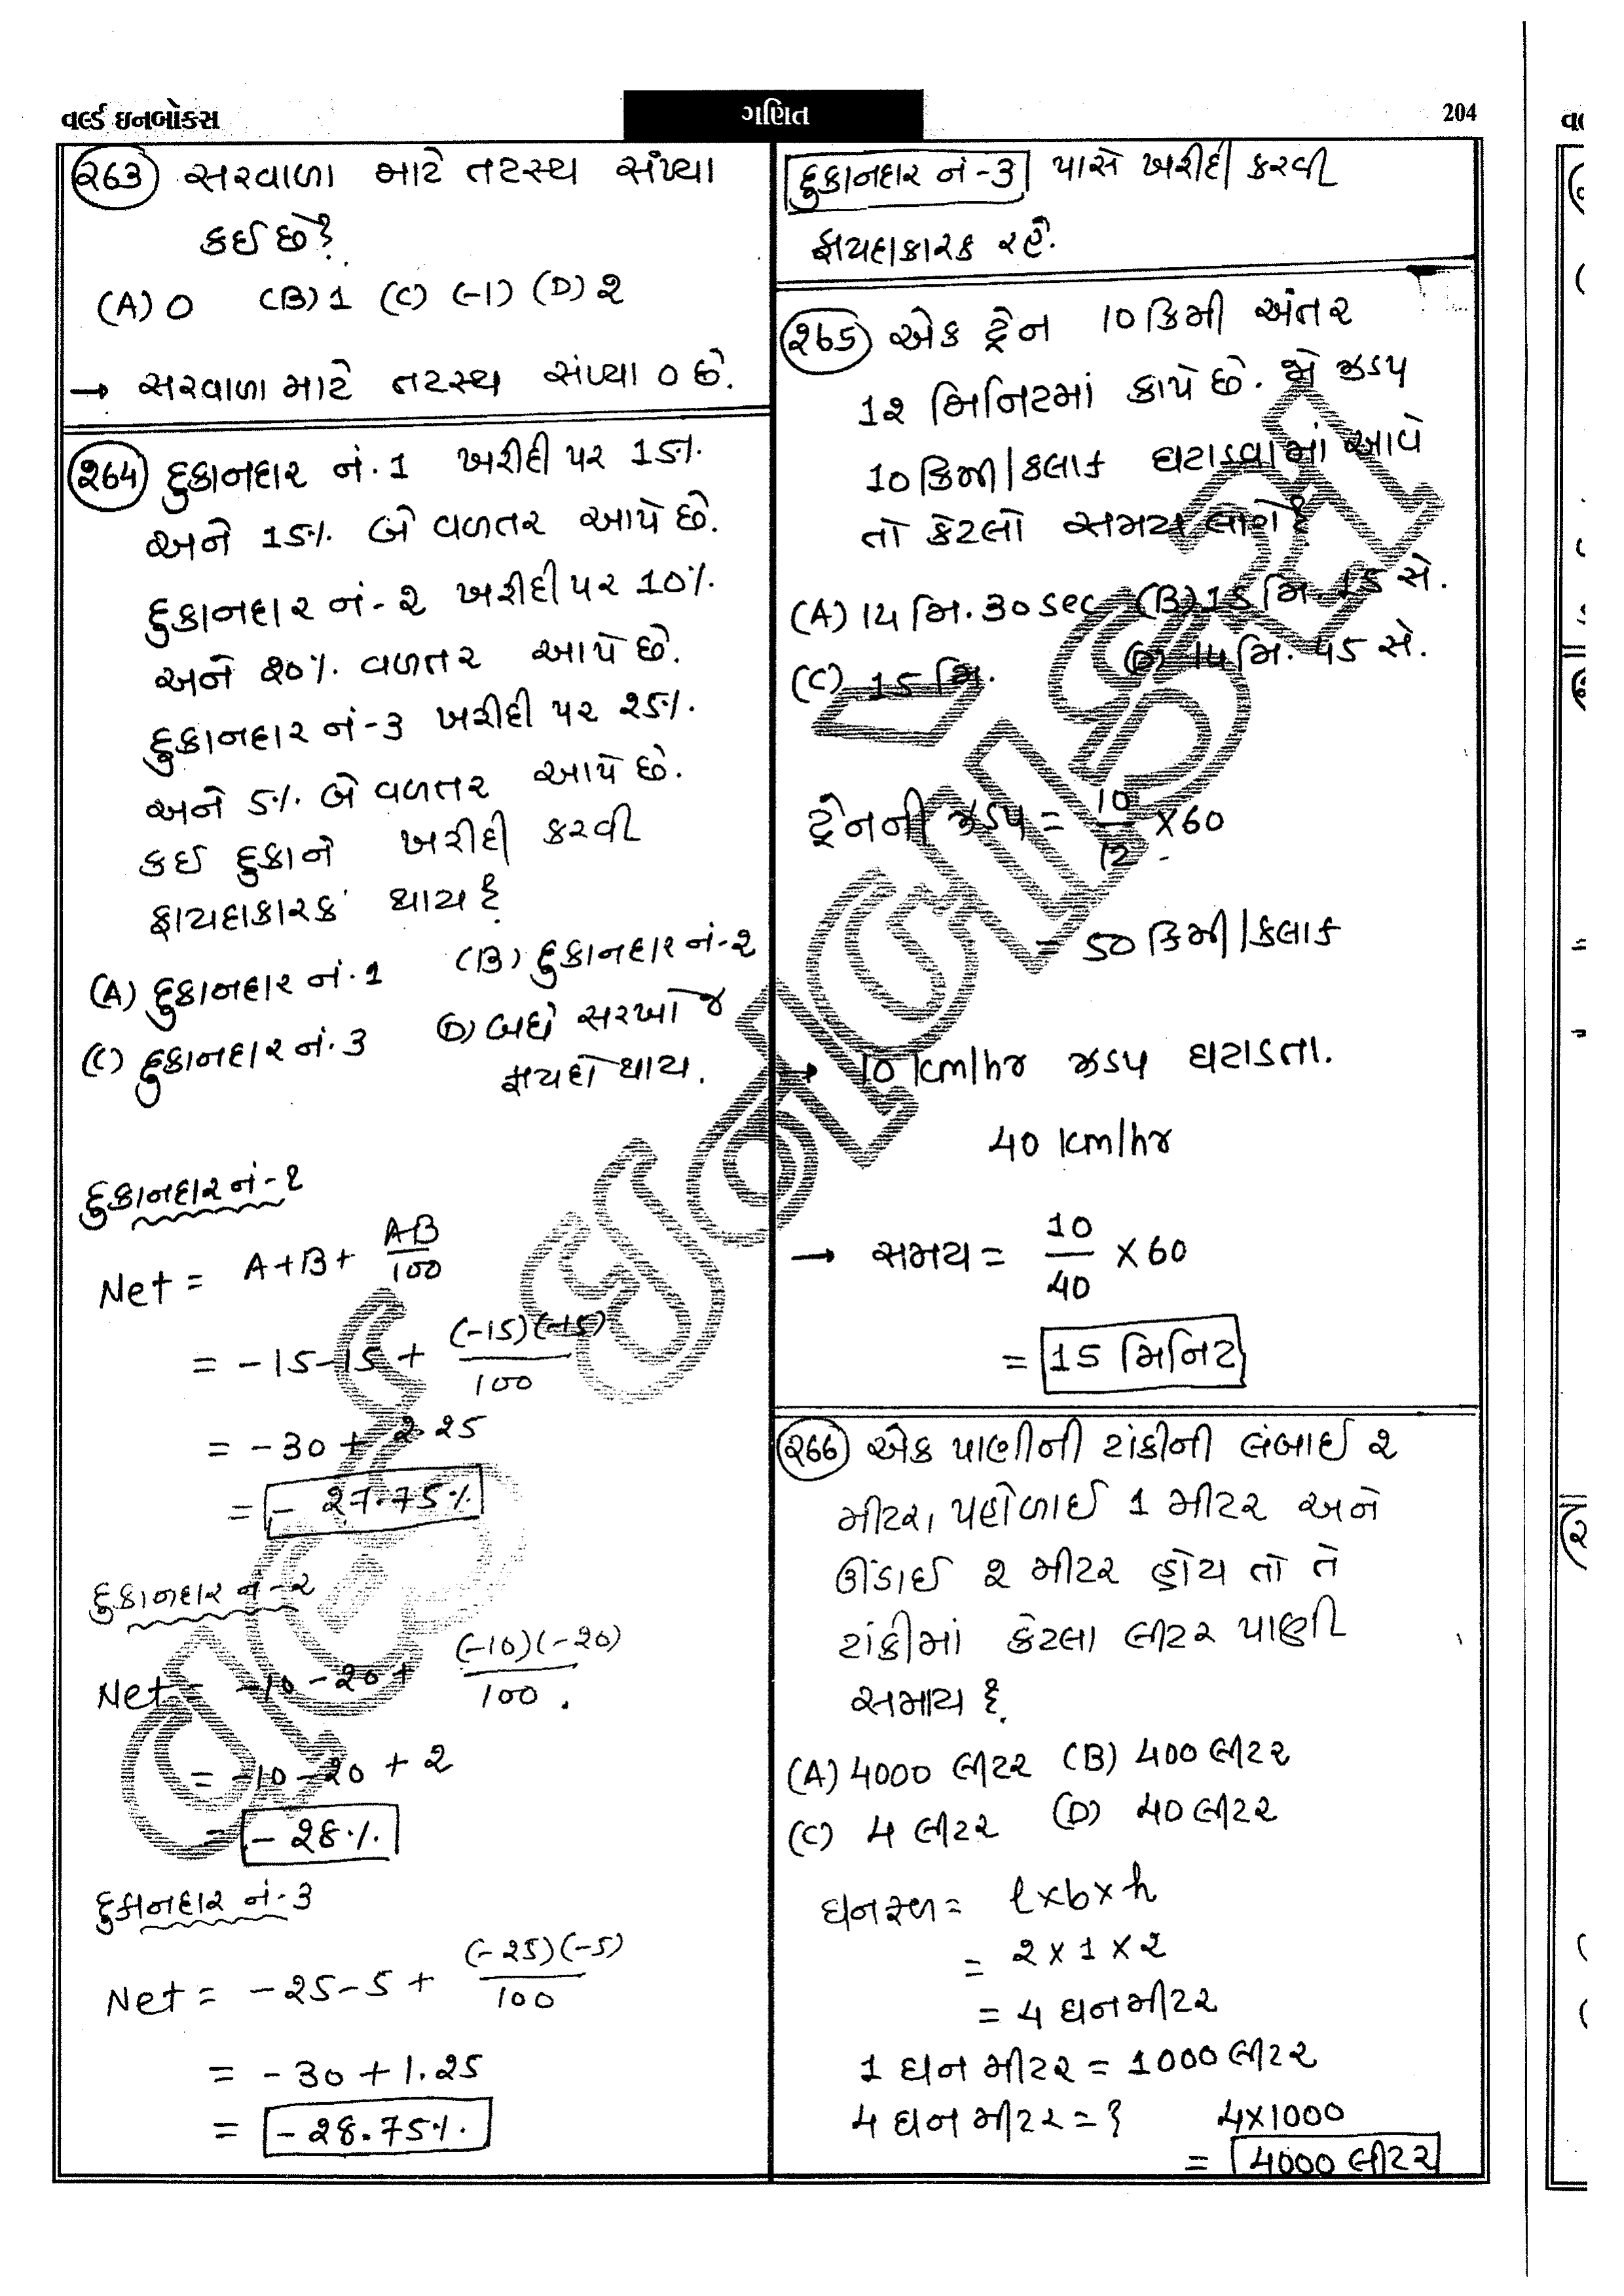 વર્લ્ડ ઇનબોક્સ
ગણિત
204
263 સરવાળા માટે તટસ્થ સંખ્યા
કઈ છે?
(A) 0 (B) 1 (C) (-1) (D) 2
→ સરવાળા માટે તટસ્થ સંખ્યા 0 છે.
264 દુકાનદાર નં.1 ખરીદી પર 15%
અને 15% બે વળતર આપે છે.
દુકાનદાર નં-2 ખરીદી પર 10%
અને 20% વળતર આપે છે.
દુકાનદાર નં-3 ખરીદી પર 25%
અને 5% બે વળતર આપે છે.
કઈ દુકાને ખરીદી કરવી
ફાયદાકારક થાય?
(A) દુકાનદાર નં.1 (B) દુકાનદાર નં-2
(C) દુકાનદાર નં.3 (D) બધે સરખો જ
ફાયદો થાય.
દુકાનદાર નં-1
Net = A+B+ AB/100
= -15-15 + (-15)(-15)/100
= -30 + 2.25
= - 27.75%
દુકાનદાર નં-2
Net = -10-20+ (-10)(-20)/100.
= -10-20 + 2
= - 28%
દુકાનદાર નં-3
Net = -25-5 + (-25)(-5)/100
= -30 + 1.25
= -28.75%
દુકાનદાર નં-3 પાસે ખરીદી કરવી
ફાયદાકારક રહે.
265 એક ટ્રેન 10 કિમી અંતર
12 મિનિટમાં કાપે છે. જો ઝડપ
10 કિમી/કલાક ઘટાડવામાં આવે
તો કેટલો સમય લાગે?
(A) 14 મિ. 30 sec (B) 15 મિ. 15 સે.
(C) 15 મિ. (D) 14 મિ. 45 સે.
ટ્રેનની ઝડપ = 10/12 × 60
= 50 કિમી/કલાક
→ 10 km/hr ઝડપ ઘટાડતા.
40 km/hr
→ સમય = 10/40 × 60
= 15 મિનિટ
266 એક પાણીની ટાંકીની લંબાઈ 2
મીટર, પહોળાઈ 1 મીટર અને
ઊંડાઈ 2 મીટર હોય તો તે
ટાંકીમાં કેટલા લીટર પાણી
સમાય?
(A) 4000 લીટર (B) 400 લીટર
(C) 4 લીટર (D) 40 લીટર
ઘનફળ = l×b×h
= 2 × 1 × 2
= 4 ઘનમીટર
1 ઘન મીટર = 1000 લીટર
4 ઘન મીટર = ? 4×1000
= 4000 લીટર